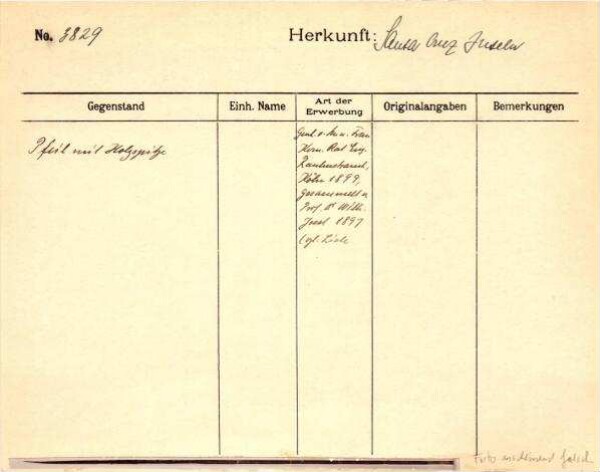 No. 3829
Herkunft: Santa Cruz Inseln
Gegenstand
Einh. Name
Art der Erwerbung
Originalangaben
Bemerkungen
Pfeil mit Holzspitze
Frau
Kom. Rat Eug.
Rautenstrauch,
Köln 1899,
gesammelt v.
Prof. Dr Wilh.
Joest 1897
Foto falsch